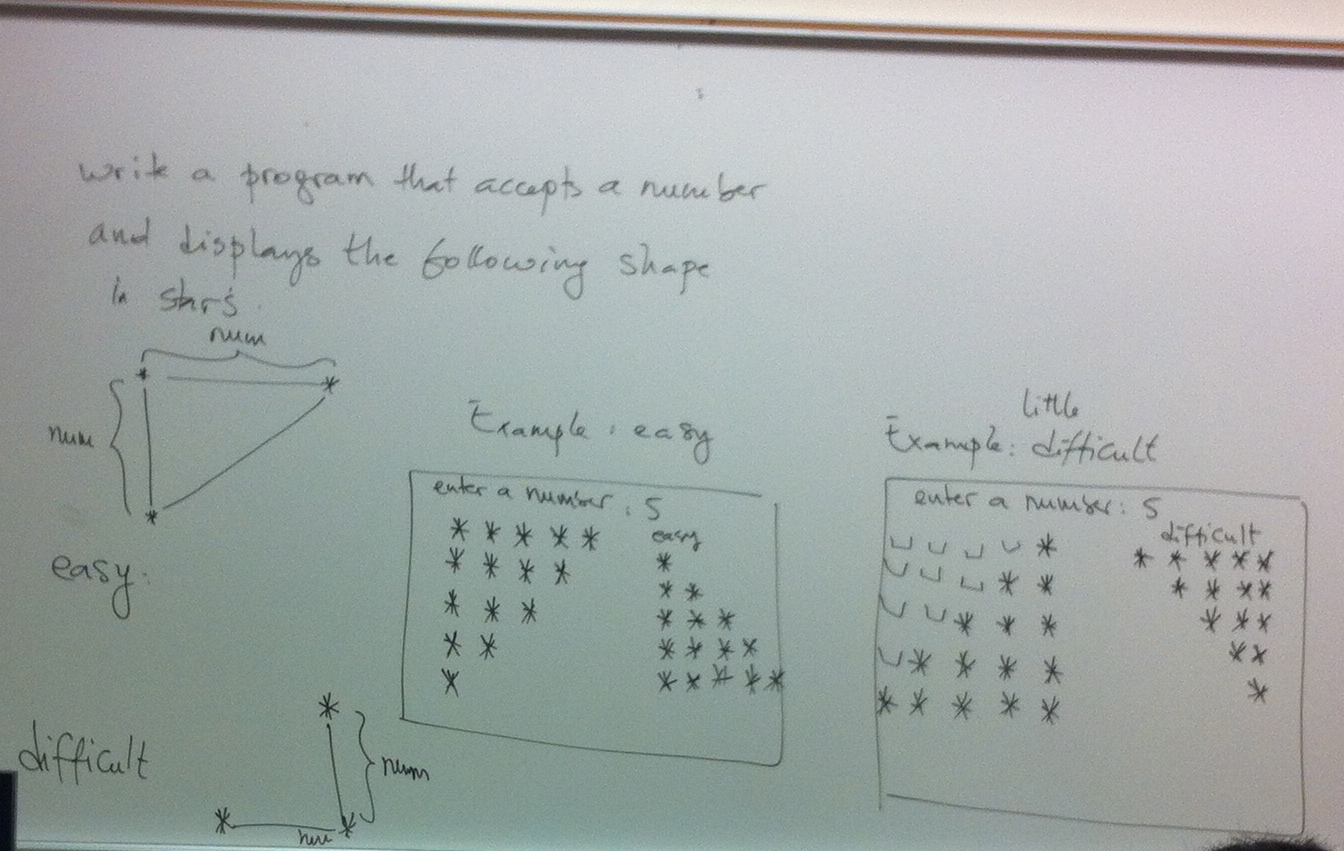 write a program that accepts a number
and displays the following shape
in stars.
num
num
easy:
Example: easy
enter a number: 5
* * * * *
* * * *
* * *
* *
*
easy
*
* *
* * *
* * * *
* * * * *
little
Example: difficult
enter a number: 5
␣ ␣ ␣ ␣ *
␣ ␣ ␣ * *
␣ ␣ * * *
␣ * * * *
* * * * *
difficult
* * * * *
* * * *
* * *
* *
*
difficult
num
num